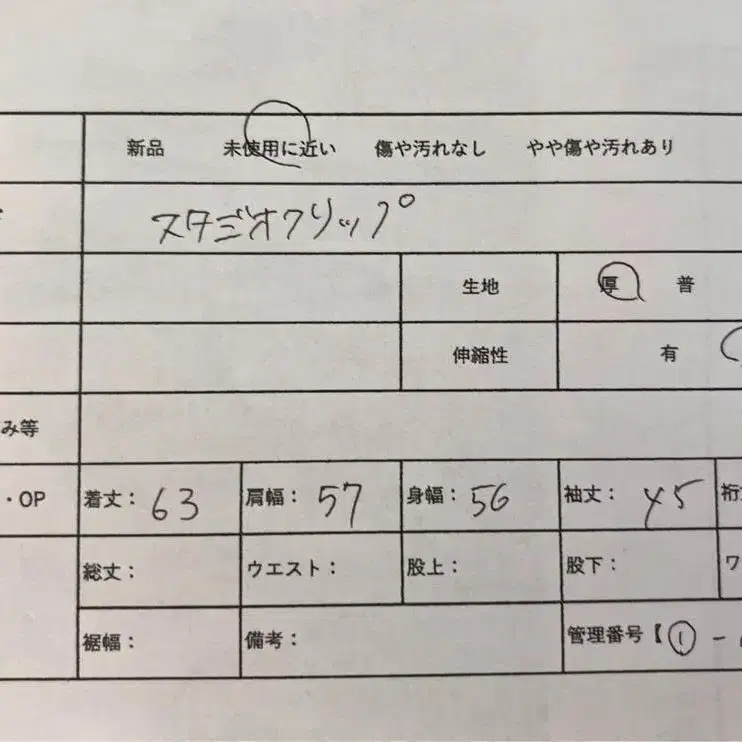 新品 未使用に近い 傷や汚れなし やや傷や汚れあり
スタジオクリップ
生地 厚 普
伸縮性 有
み等
・OP 着丈： 63 肩幅： 57 身幅： 56 袖丈： 45 裄
総丈： ウエスト： 股上： 股下： ワ
裾幅： 備考： 管理番号【① -